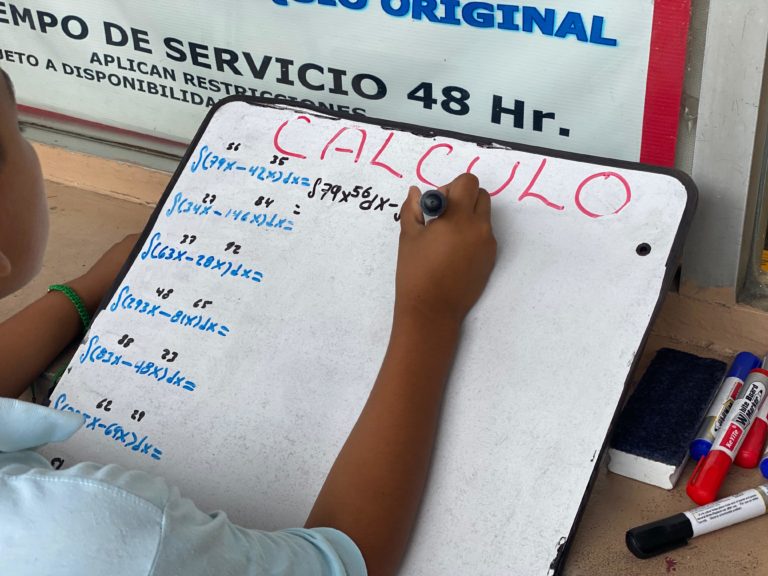 ORIGINAL
EMPO DE SERVICIO 48 Hr.
APLICAN RESTRICCIONES
JETO A DISPONIBILIDA
CALCULO
∫(79x⁵⁶-42x³⁵)dx= ∫79x⁵⁶dx-
∫(34x²⁷-146x⁸⁴)dx= =
∫(63x³⁷-28x⁹²)dx=
∫(293x⁴⁸-81x⁶⁵)dx=
∫(83x⁸⁸-48x²³)dx=
x⁶²-69x²⁹)dx=
White Board
Marker